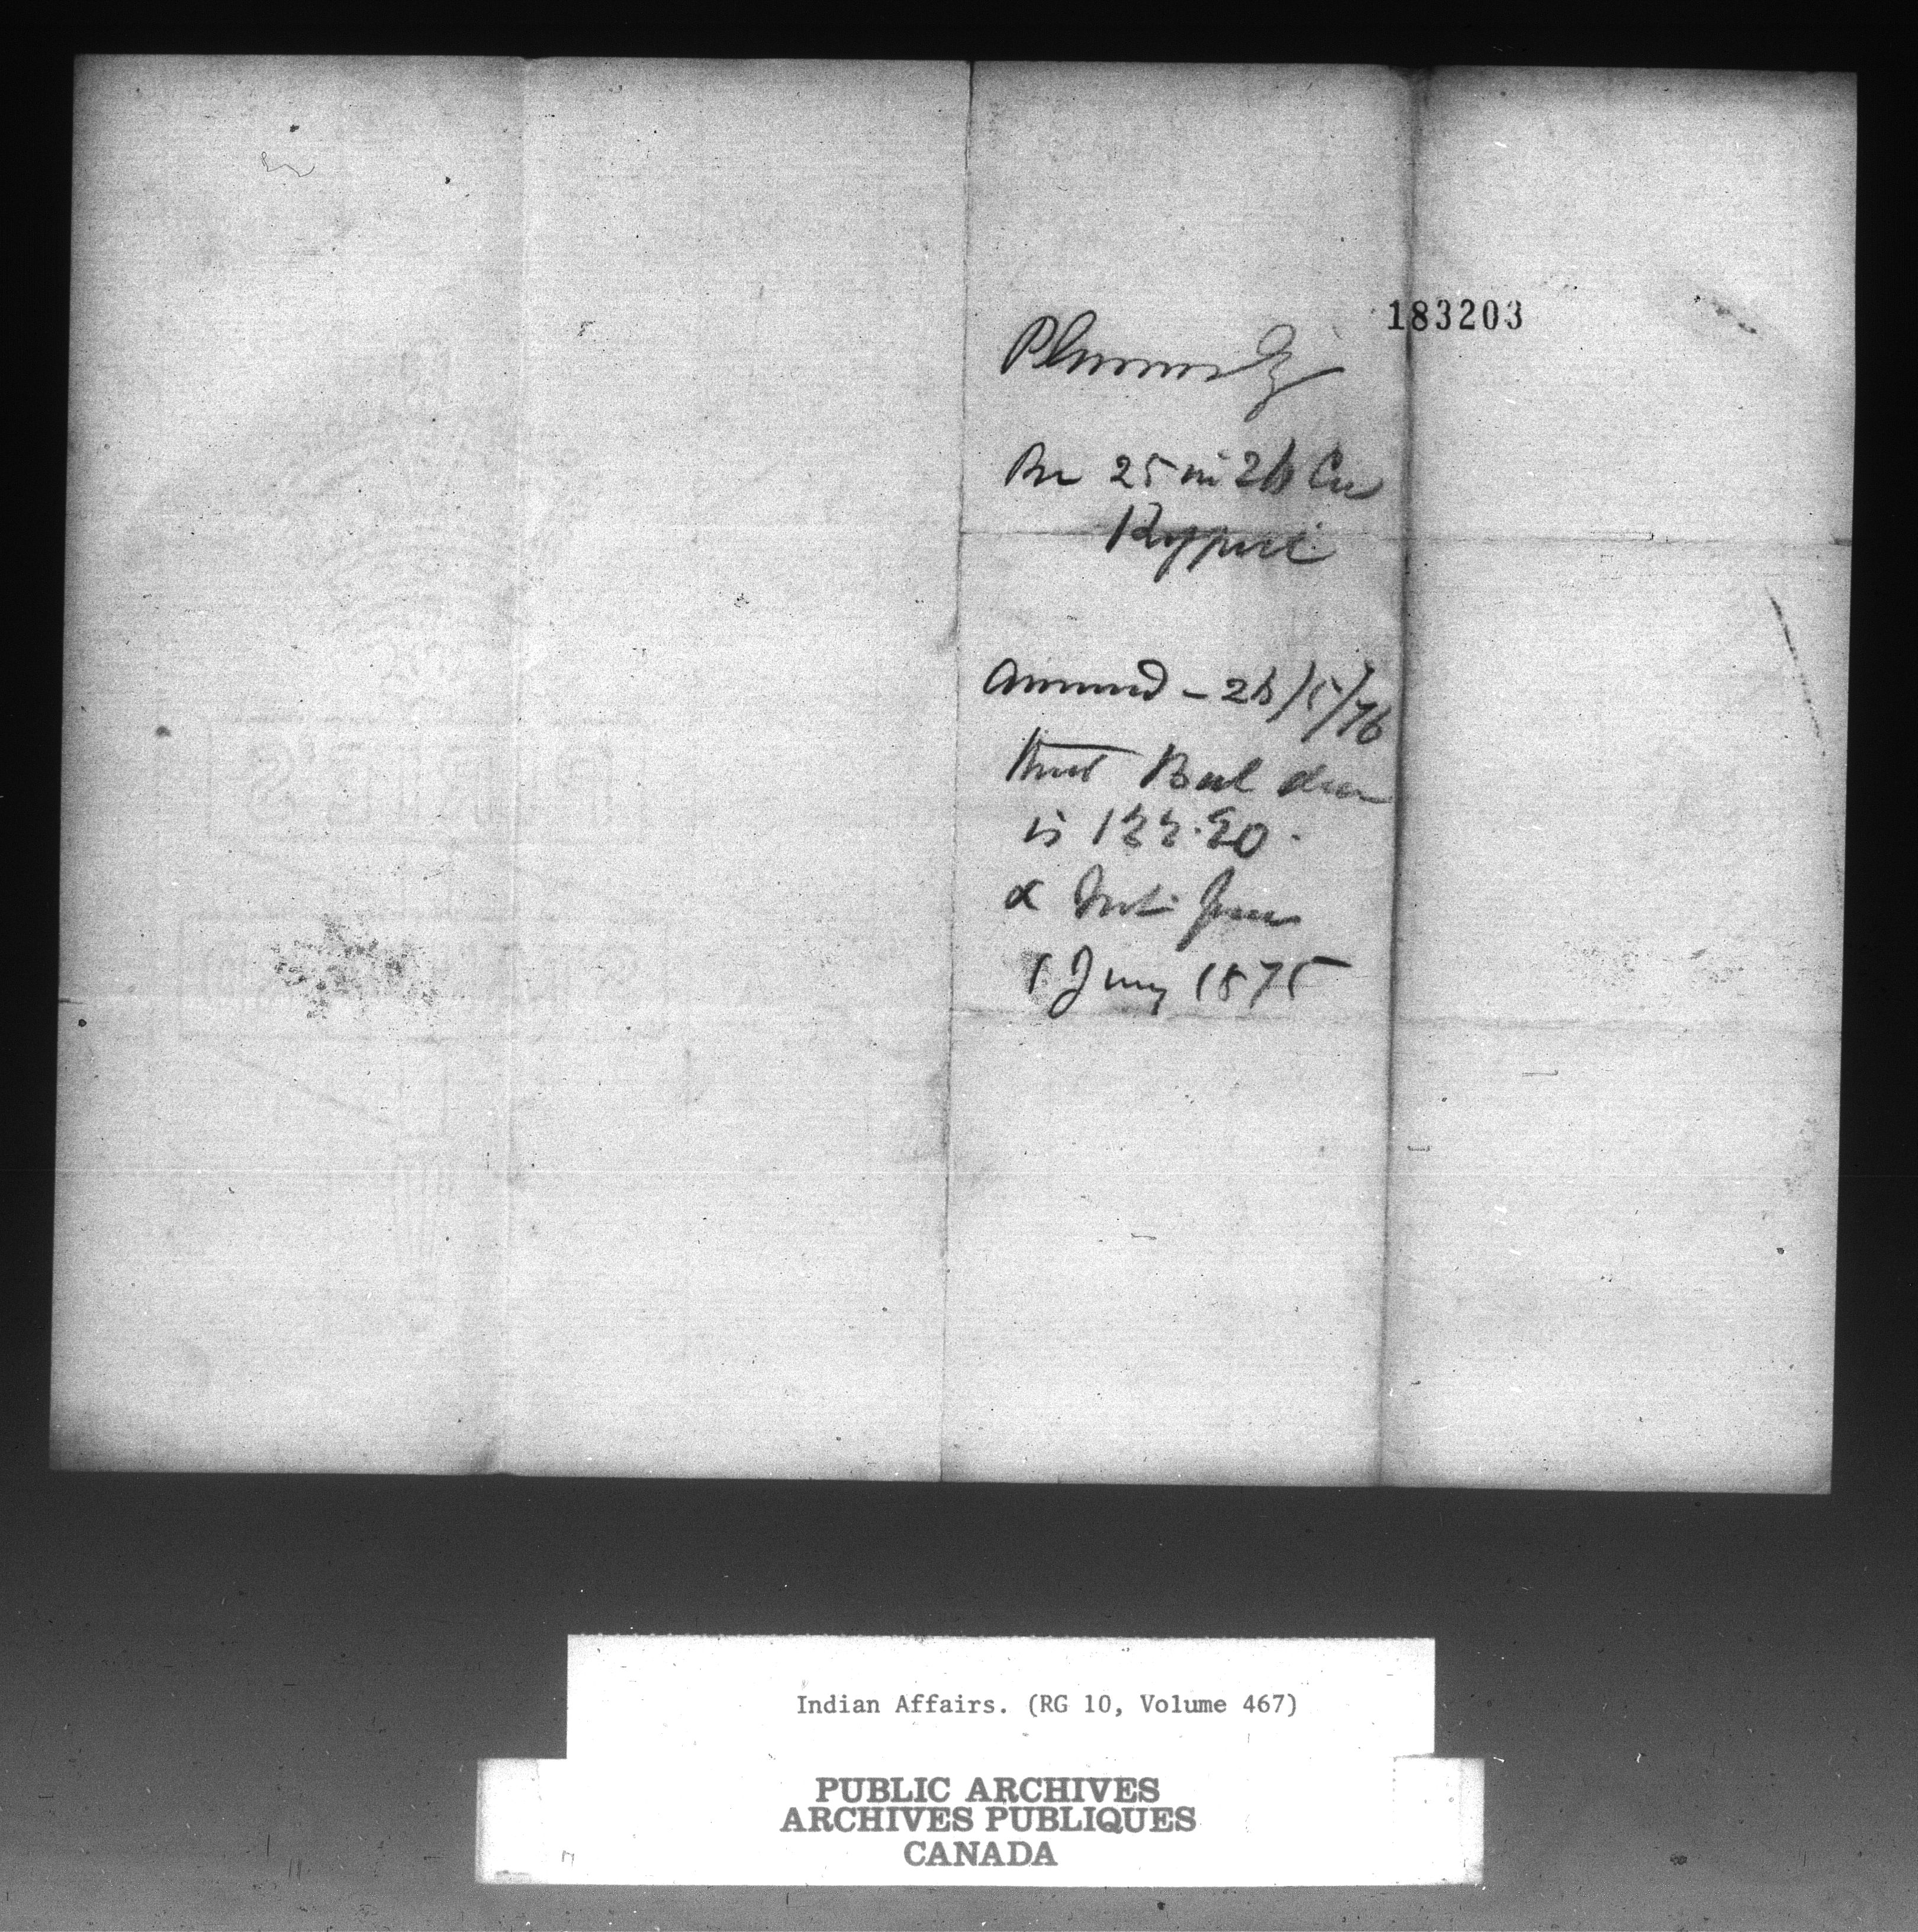 183203
Plummer
Re 25 in 26 Con
Keppel
Answd - 26/5/76
that Bal due
is 133.30.
& Int. from
1 Jany 1875
PIRIE'S
Indian Affairs. (RG 10, Volume 467)
PUBLIC ARCHIVES
ARCHIVES PUBLIQUES
CANADA